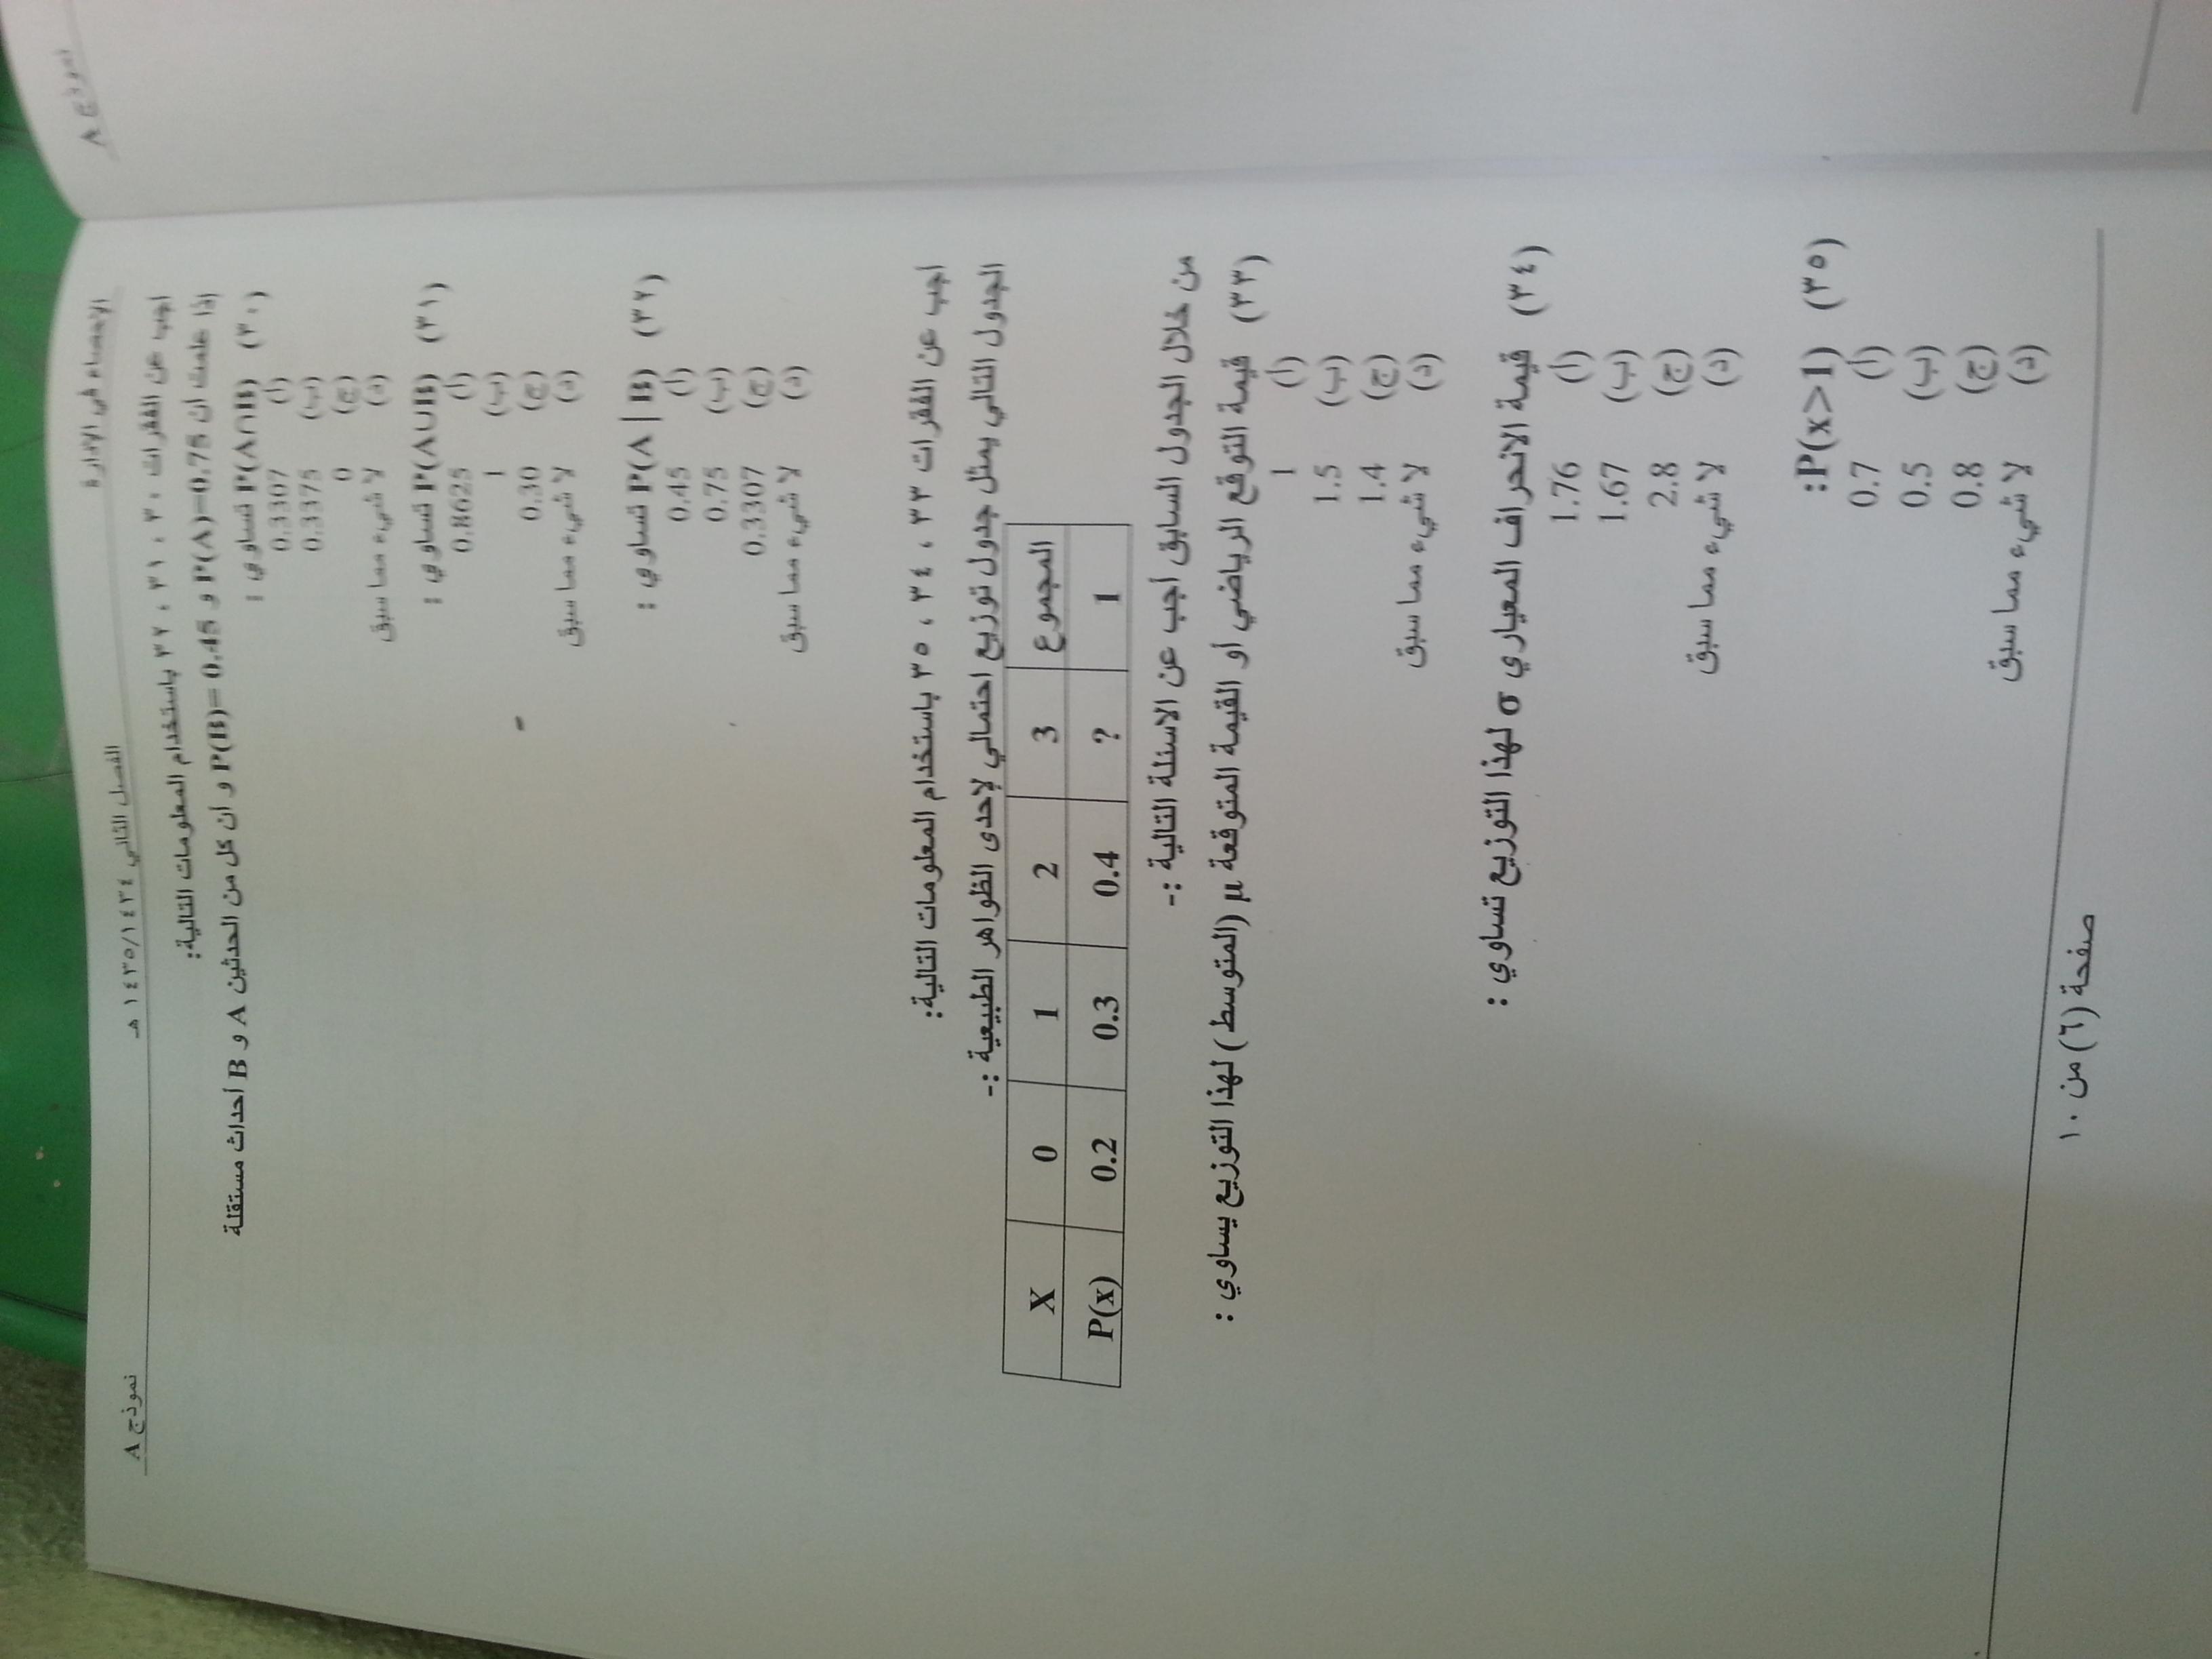 نموذج A
الإحصاء في الإدارة الفصل الثاني ١٤٣٥/١٤٣٤ هـ نموذج A
أجب عن الفقرات ٣٠ ، ٣١ ، ٣٢ باستخدام المعلومات التالية:
إذا علمت أن P(A)=0.75 و P(B)= 0.45 و أن كل من الحدثين A و B أحداث مستقلة
(٣٠) P(A∩B) تساوي :
(أ) 0.3307
(ب) 0.3375
(ج) 0
(د) لا شيء مما سبق
(٣١) P(A∪B) تساوي :
(أ) 0.8625
(ب) 1
(ج) 0.30
(د) لا شيء مما سبق
(٣٢) P(A | B) تساوي :
(أ) 0.45
(ب) 0.75
(ج) 0.3307
(د) لا شيء مما سبق
أجب عن الفقرات ٣٣ ، ٣٤ ، ٣٥ باستخدام المعلومات التالية:
الجدول التالي يمثل جدول توزيع احتمالي لإحدى الظواهر الطبيعية :-
X 0 1 2 3 المجموع
P(x) 0.2 0.3 0.4 ? 1
من خلال الجدول السابق أجب عن الاسئلة التالية :-
(٣٣) قيمة التوقع الرياضي أو القيمة المتوقعة µ (المتوسط ) لهذا التوزيع يساوي :
(أ) 1
(ب) 1.5
(ج) 1.4
(د) لا شيء مما سبق
(٣٤) قيمة الانحراف المعياري σ لهذا التوزيع تساوي :
(أ) 1.76
(ب) 1.67
(ج) 2.8
(د) لا شيء مما سبق
(٣٥) P(x>1):
(أ) 0.7
(ب) 0.5
(ج) 0.8
(د) لا شيء مما سبق
صفحة (٦) من ١٠